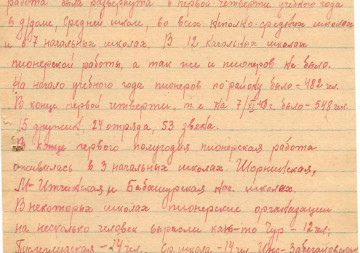 работа была развернута в первой четверти учебного года
в друж. средней школ, во всех неполно-средних школах
и в 7 начальных школах. В 12 начальных школах
пионерской работы, а так же и пионеров не было.
На начало учебного года пионеров по району было - 482 чел.
К конце первой четверти, т.е на 7/XI 48 г. было - 548 чел.
15 дружин, 24 отряда, 53 звена.
В конце первого полугодия пионерская работа
оживилась в 3 начальных школах Шорнинская,
Итчинская и Бабашурская нач. школах.
В некоторых школах пионерские организации
на несколько человек выросли как-то Гур - 12 чел;
- 14 чел., Ср. школа - 14 чел.